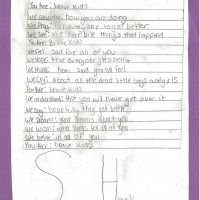 You Are: brave kids
We wonder: how you are doing
We Pray: for everyone to feel better
We See: the terrible things that happend
You Are: Brave kids
We Feel: sad for all of you
We Hope: that everyone gets better
We think: how sad you all feel
We Cry: about all the dead little boys and girls
You Are: Brave kids
We understand: that you will never get over it
We Say: hope they get better
We Dream: about you
We Wish: good things for all of you
We believe: in all of you
You Are: brave kids
S H